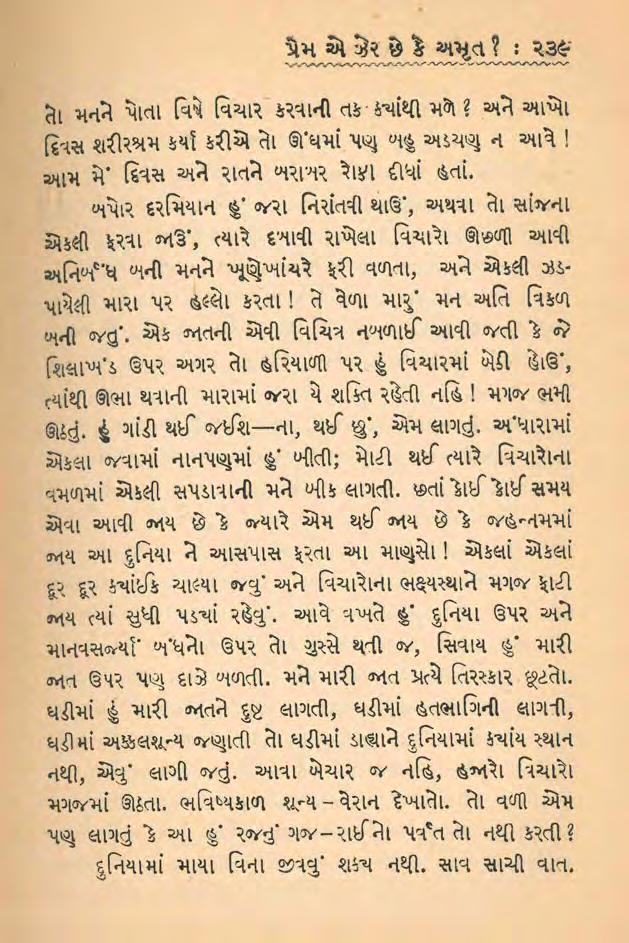 પ્રેમ એ ઝેર છે કે અમૃત? : ૨૩૯
તો મનને પોતા વિષે વિચાર કરવાની તક કયાંથી મળે? અને આખો
દિવસ શરીરશ્રમ કર્યા કરીએ તો ઊંઘમાં પણ બહુ અડચણ ન આવે!
આમ મેં દિવસ અને રાતને બરાબર રોકી દીધાં હતાં.
બપોર દરમિયાન હું જરા નિરાંતવી થાઉં, અથવા તો સાંજના
એકલી ફરવા જાઉં, ત્યારે દબાવી રાખેલા વિચારો ઊછળી આવી
અનિર્બંધ બની મનને ખૂણેખાંચરે ફરી વળતા, અને એકલી ઝડ-
પાયેલી મારા પર હલ્લો કરતા! તે વેળા મારું મન અતિ વિકળ
બની જતું. એક જાતની એવી વિચિત્ર નબળાઈ આવી જતી કે જે
શિલાખંડ ઉપર અગર તો હરિયાળી પર હું વિચારમાં બેઠી હોઉં,
ત્યાંથી ઊભા થવાની મારામાં જરા યે શક્તિ રહેતી નહિ! મગજ ભમી
ઊઠતું. હું ગાંડી થઈ જઈશ—ના, થઈ છું, એમ લાગતું. અંધારામાં
એકલા જવામાં નાનપણમાં હું બીતી; મોટી થઈ ત્યારે વિચારોના
વમળમાં એકલી સપડાવાની મને બીક લાગતી. છતાં કોઈ કોઈ સમય
એવા આવી જાય છે કે જ્યારે એમ થઈ જાય છે કે જહન્નમમાં
જાય આ દુનિયા ને આસપાસ ફરતા આ માણસો! એકલાં એકલાં
દૂર દૂર કયાંઈક ચાલ્યા જવું અને વિચારોના ભક્ષ્યસ્થાને મગજ ફાટી
જાય ત્યાં સુધી પડયાં રહેવું. આવે વખતે હું દુનિયા ઉપર અને
માનવસર્જ્યાં બંધનો ઉપર તો ગુસ્સે થતી જ, સિવાય હું મારી
જાત ઉપર પણ દાઝે બળતી. મને મારી જાત પ્રત્યે તિરસ્કાર છૂટતો.
ઘડીમાં હું મારી જાતને દુષ્ટ લાગતી, ઘડીમાં હતભાગિની લાગતી,
ઘડીમાં અક્કલશૂન્ય જણાતી તો ઘડીમાં ડાહ્યાને દુનિયામાં કયાંય સ્થાન
નથી, એવું લાગી જતું. આવા બેચાર જ નહિ, હજારો વિચારો
મગજમાં ઊઠતા. ભવિષ્યકાળ શૂન્ય – વેરાન દેખાતો. તો વળી એમ
પણ લાગતું કે આ હું રજનું ગજ–રાઈનો પર્વત તો નથી કરતી?
દુનિયામાં માયા વિના જીવવું શકય નથી. સાવ સાચી વાત.